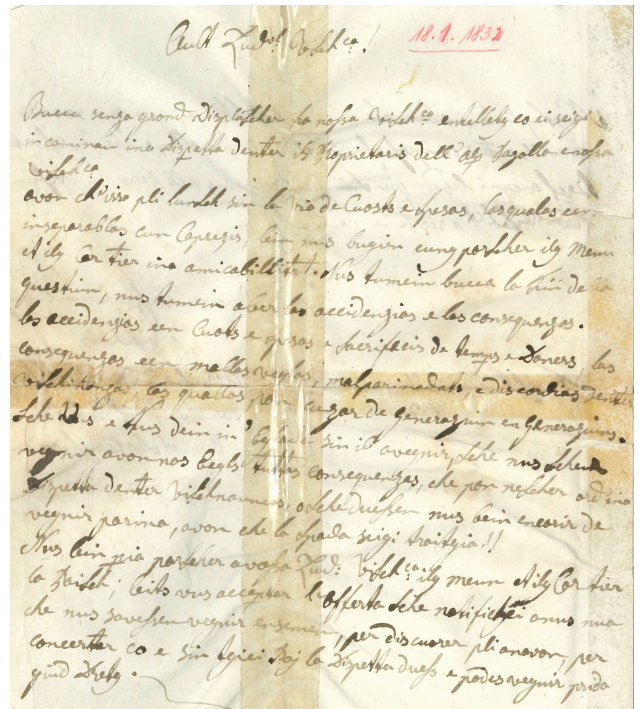 Ault Lud. Vischca! 18.1.1832
Bucca senza grond displascher ha nossa Vischca entelletg co ei seigi
incaminau ina Dispetta denter ils Proprietaris dell' alp e nossa
Vischca
avon ch'issa pli lunsch sin la via de Cuosts e spesas, las qualas een
inseparablas cun lein nus bugien eung porscher ilg Meun
a ilg Cortier ina amicabilitat. Nus tumein bucca la fin de la
questiun, nus tumein aber las accidenzias e las consequenzas.
las accidenzias een Cuosts e spesas e sacrifecis de temps e Daners, las
consequenzas een mallas veglas, malparinadads, e discordias denter
Vischinaunas, las qualas pon cuzar de Generaziun en Generaziuns.
Sche Vus e Nus dein in' Egliada sin il avegnir, sche nus
vegnir avon nos Eegls tuttas consequenzas, che pon nescher ord ina
Dispetta denter Vischnauncas, o sche duessen nus bein encurir de
vegnir parina, avon che la Spada seigi traitgia!!
Nus lein pia porscher a vossa Lud: Vischca: ilg meun a ilg Cortier
la ; leits vus acceptar l'offerta sche notifichei a nus nua
che nus savessen vegnir ensemen, per discuorer pli anavon, per
concertar co e sin tgiei la Dispetta duess e podess vegnir prida
giud Dretg.